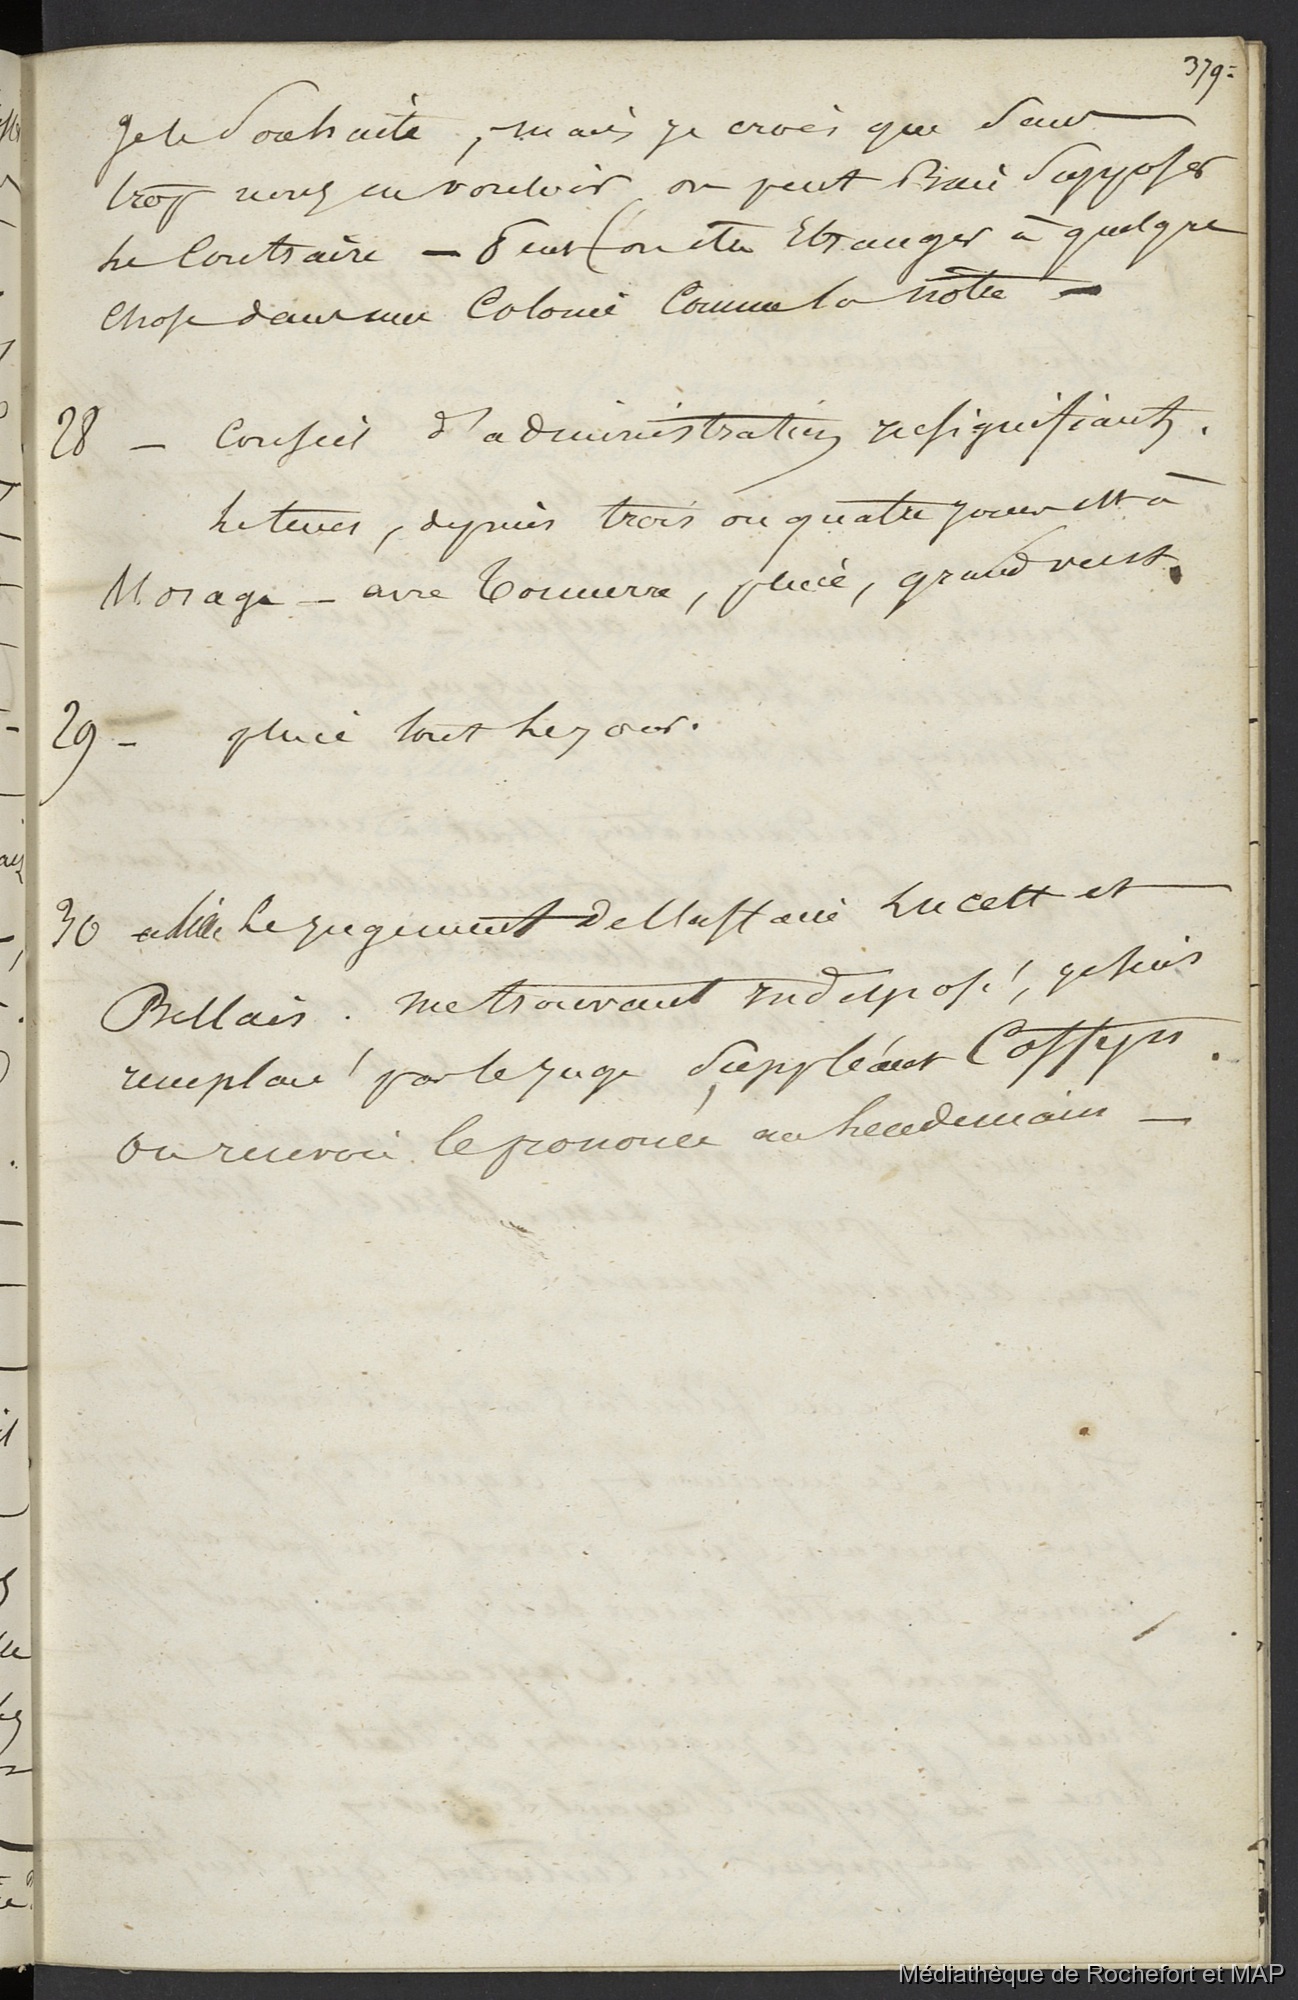 379=
Je le Souhaite, mais je crois que sans
trop nous en vouloir on peut Bien Supposer
le Contraire — Peut on etre Etranger à quelque
chose dans une Colonie Comme la nôtre —
28 — Conseil d'administration insignifiant.
Le tems, depuis trois ou quatre jours est à
l'orage — avec Tonnerre, pluie, grand vent.
29 — pluie tout le jour.
30 le jugement de l'affaire Lucett et
Bellais. me trouvant indisposé, je suis
remplacé par le juge Suppléant Cosseyn.
On renvoie le prononcé au lendemain —
Médiathèque de Rochefort et MAP